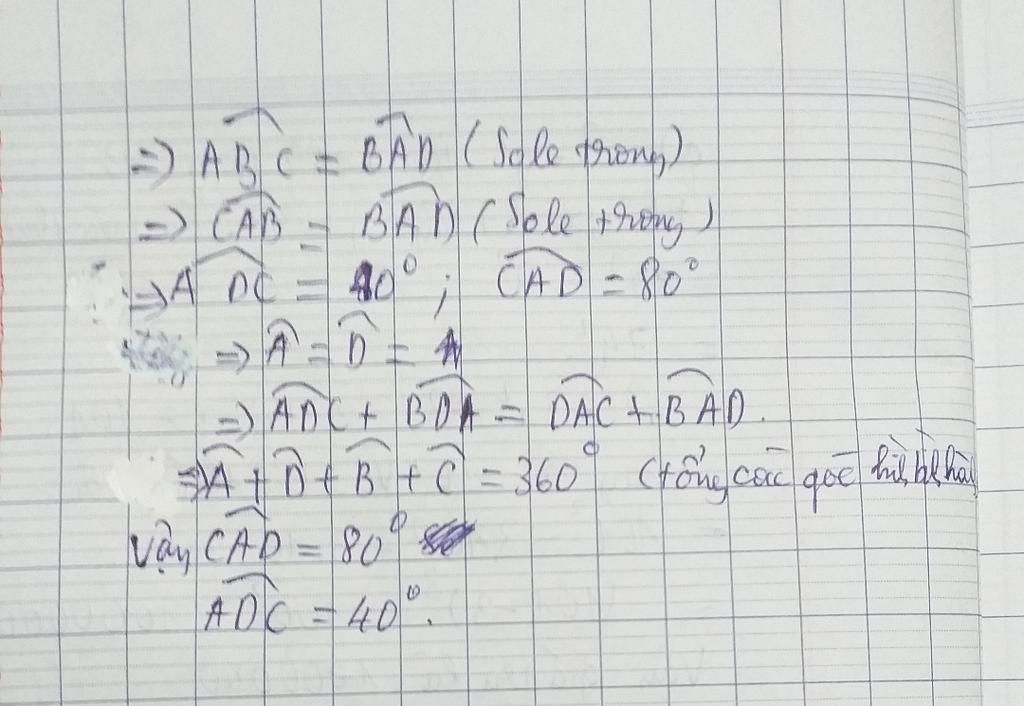 => ABC = BAD (Sole trong)
=> CAB = BAD (Sole trong)
=> ADC = 40°; CAD = 80°
=> A = D =
=> ADC + BDA = DAC + BAD.
=> A + D + B + C = 360° (tổng các goč
Vậy CAD = 80°
ADC = 40°.